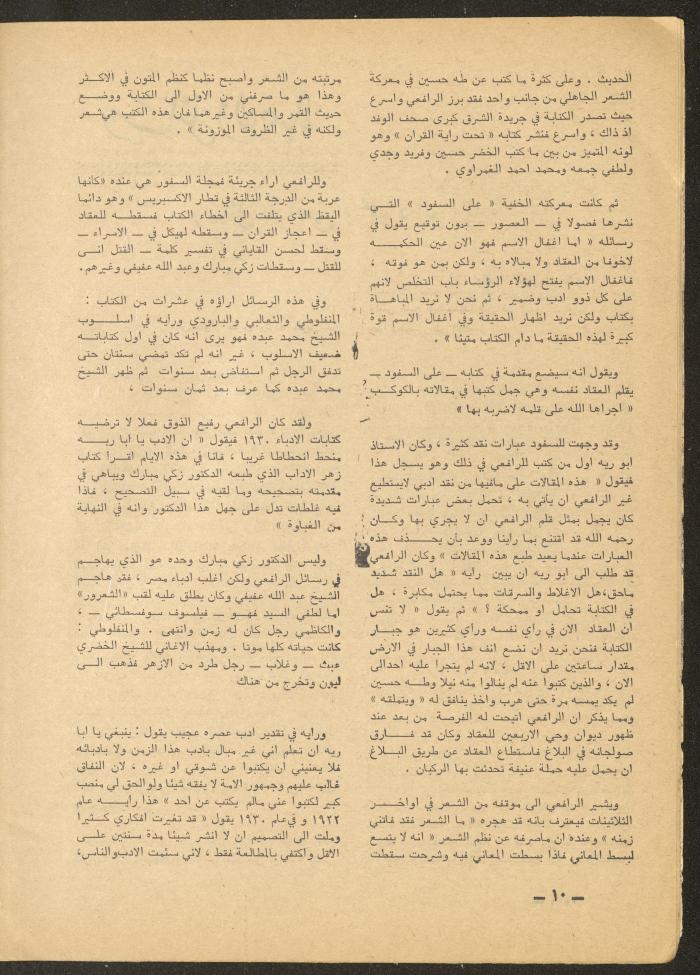 الحديث . وعلى كثرة ما كتب عن طه حسين في معركة
الشعر الجاهلي من جانب واحد فقد برز الرافعي واسرع
حيث تصدر الكتابة في جريدة الشرق كبرى صحف الوفد
اذ ذاك ، واسرع فنشر كتابه « تحت راية القران » وهو
لونه المتميز من بين ما كتب الخضر حسين وفريد وجدي
ولطفي جمعه ومحمد احمد الغمراوي .
ثم كانت معركته الخفية « على السفود » التي
نشرها فصولا في ــ العصور ــ بدون توقيع يقول في
رسائله « اما اغفال الاسم فهو الان عين الحكمه
لاخوفا من العقاد ولا مبالاه به ، ولكن بمن هو فوقه ،
فاغفال الاسم يفتح لهؤلاء الرؤساء باب التخلص لانهم
على كل ذوو ادب وضمير ، ثم نحن لا نريد المباهاة
بكتاب ولكن نريد اظهار الحقيقة وفي اغفال الاسم قوة
كبيرة لهذه الحقيقة ما دام الكتاب متينا » .
ويقول انه سيضع مقدمة في كتابه ــ على السفود ــ
يقلم العقاد نفسه وهي جمل كتبها في مقالاته بالكوكب
« اجراها الله على قلمه لاضربه بها »
وقد وجهت للسفود عبارات نقد كثيرة ، وكان الاستاذ
ابو ريه اول من كتب للرافعي في ذلك وهو يسجل هذا
فيقول « هذه المقالات على مافيها من نقد ادبي لايستطيع
غير الرافعي ان يأتي به ، تحمل بعض عبارات شديدة
كان يجمل بمثل قلم الرافعي ان لا يجري بها وكان
رحمه الله قد اقتنع بما راينا ووعد بأن يحذف هذه
العبارات عندما يعيد طبع هذه المقالات » وكان الرافعي
قد طلب الى ابو ريه ان يبين رايه « هل النقد شديد
ماحق،هل الاغلاط والسرقات مما يحتمل مكابرة ، هل
في الكتابة تحامل او ممحكة ؟ » ثم يقول « لا تنس
ان العقاد الان في رأي نفسه وراي كثيرين هو جبار
الكتابة فنحن نريد ان نضع انف هذا الجبار في الارض
مقدار ساعتين على الاقل ، لانه لم يتجرا عليه احدالى
الان ، والذين كتبوا عنه لم ينالوا منه نيلا وطه حسين
لم يكد يمسه مرة حتى هرب واخذ ينافق له « ويتملقته »
ومما يذكر ان الرافعي اتيحت له الفرصة من بعد عند
ظهور ديوان وحي الاربعين للعقاد وكان قد فارق
صولجانه في البلاغ فاستطاع العقاد عن طريق البلاغ
ان يحمل عليه حملة عنيفة تحدثت بها الركبان .
ويشير الرافعي الى موقفه من الشعر في اواخر
الثلاثينات فيعترف بانه قد هجره « ما الشعر فقد فاتني
زمنه » وعنده ان ماصرفه عن نظم الشعر « انه لا يتسع
لبسط المعاني فاذا بسطت المعاني فيه وشرحت سقطت
مرتبته من الشعر واصبح نظما كنظم المتون في الاكثر
وهذا هو ما صرفني من الاول الى الكتابة ووضع
حديث القمر والمساكين وغيرهما فان هذه الكتب هي شعر
ولكنه في غير الظروف الموزونة » .
وللرافعي اراء جريئة فمجلة السفور هي عنده «كأنها
عربة من الدرجة الثالثة في قطار الاكسبريس » وهو دائما
اليقظ الذي يتلفت الى اخطاء الكتاب فسقطه للعقاد
في ــ اعجاز القران ــ وسقطه لهيكل في ــ الاسراء ــ
وسقط لحسن القاياتي في تفسير كلمة ــ القتل انى
للقتل ــ وسقطات زكي مبارك وعبد الله عفيفي وغيرهم.
وفي هذه الرسائل اراؤه في عشرات من الكتاب :
المنفلوطي والثعالبي والبارودي ورايه في اسلوب
الشيخ محمد عبده فهو يرى انه كان في اول كتاباته
ضعيف الاسلوب ، غير انه لم تكد تمضي سنتان حتى
تدفق الرجل ثم استفاض بعد سنوات ثم ظهر الشيخ
محمد عبده كما عرف بعد ثمان سنوات ،
ولقد كان الرافعي رفيع الذوق فعلا لا ترضيه
كتابات الادباء ١٩٣٠ فيقول « ان الادب يا ابا ريه
منحط انحطاطا غريبا ، فانا في هذه الايام اقرا كتاب
زهر الاداب الذي طبعه الدكتور زكي مبارك ويباهي في
مقدمته بتصحيحه وما لقيه في سبيل التصحيح ، فاذا
فيه غلطات تدل على جهل هذا الدكتور وانه في النهاية
من الغباوة »
وليس الدكتور زكي مبارك وحده هو الذي يهاجم
في رسائل الرافعي ولكن اغلب ادباء مصر ، فقد هاجم
الشيخ عبد الله عفيفي وكان يطلق عليه لقب «الشعرور»
اما لطفي السيد فهو ــ فيلسوف سوفسطائي ــ ،
والكاظمي رجل كان له زمن وانتهى . والمنفلوطي :
كانت حياته كلها موتا . ومهذب الاغاني للشيخ الخضري
عبث ــ وغلاب ــ رجل طرد من الازهر فذهب الى
ليون وتخرج من هناك
ورايه في تقدير ادب عصره عجيب يقول : ينبغي يا ابا
ريه ان تعلم اني غير مبال بادب هذا الزمن ولا بادبائه
فلا يعنيني ان يكتبوا عن شوقي او غيره ، لان النفاق
غالب عليهم وجمهور الامة لا يفقه شيئا ولوالحق لي منصب
كبير لكتبوا عني مالم يكتب عن احد » هذا رايه عام
١٩٢٢ و في عام ١٩٣٠ يقول « قد تغيرت افكاري كثيرا
وملت الى التصميم ان لا انشر شيئا مدة سنتين على
الاقل واكتفي بالمطالعة فقط ، لاني سئمت الادب والناس،
ــ ١٠ ــ